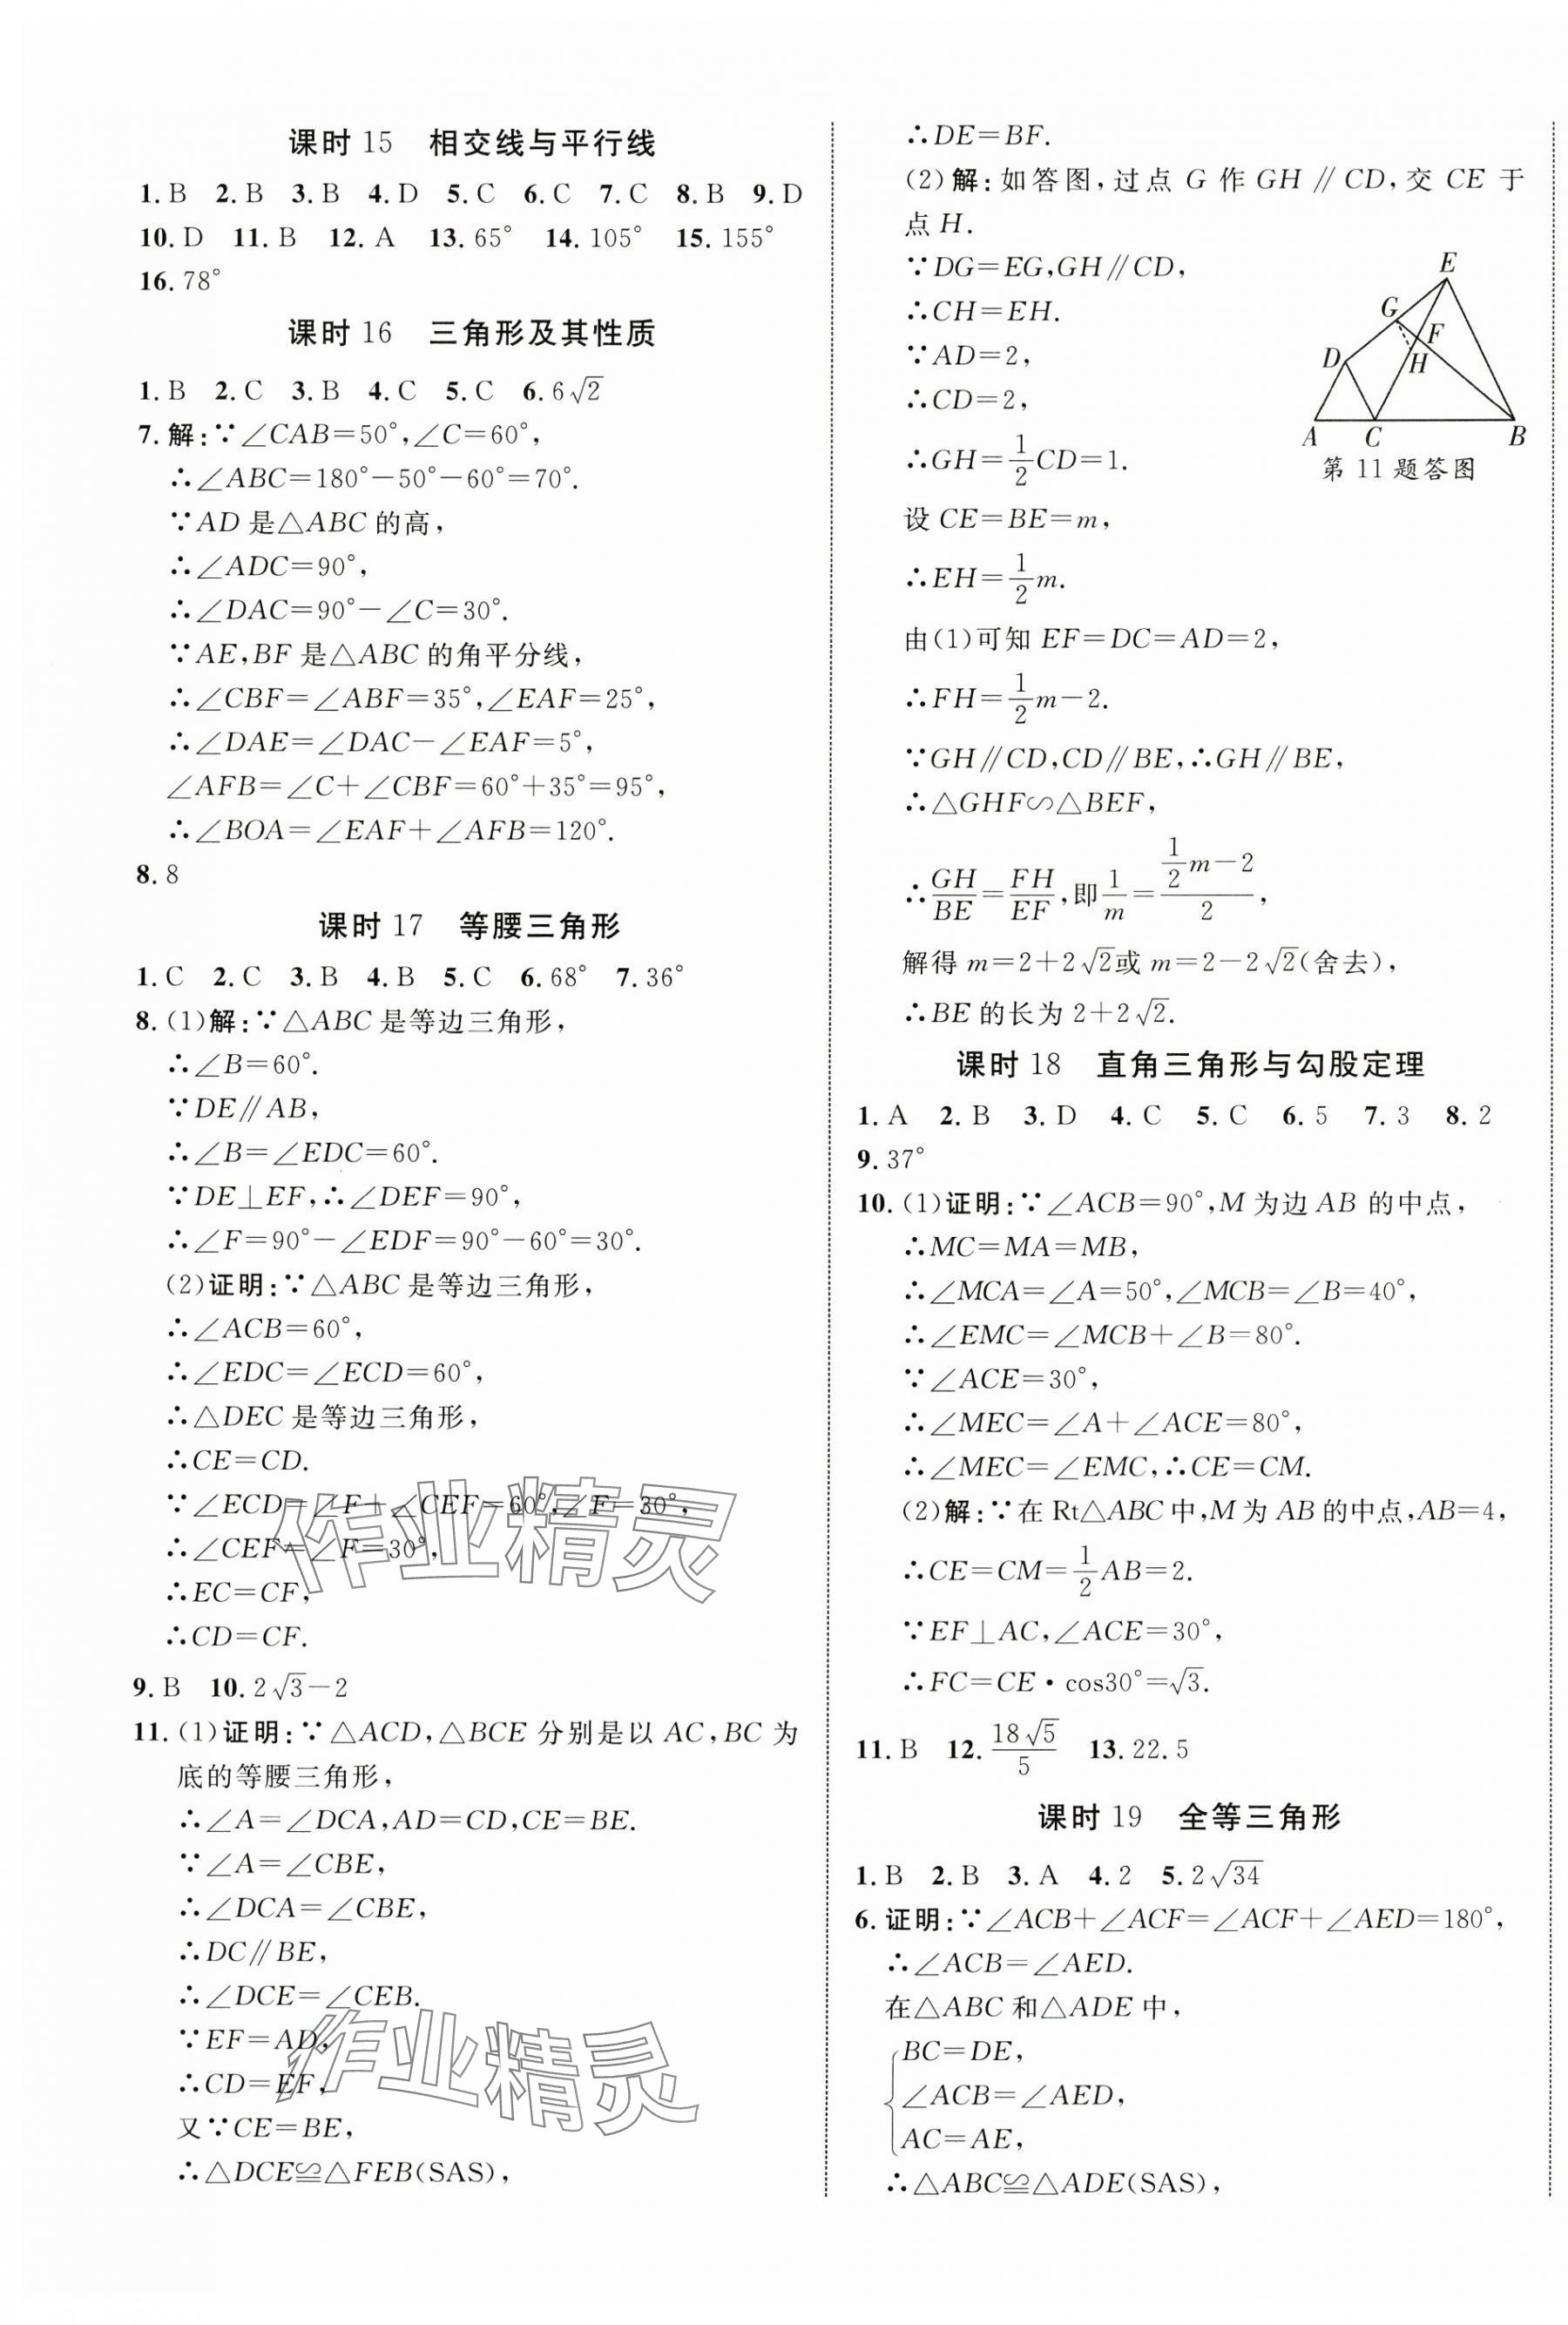 课时 15 相交线与平行线
1. B 2. B 3. B 4. D 5. C 6. C 7. C 8. B 9. D
10. D 11. B 12. A 13. 65° 14. 105° 15. 155°
16. 78°
课时 16 三角形及其性质
1. B 2. C 3. B 4. C 5. C 6. 6√2
7. 解:∵∠CAB=50°,∠C=60°,
∴∠ABC=180°-50°-60°=70°.
∵AD 是△ABC 的高,
∴∠ADC=90°,
∴∠DAC=90°-∠C=30°.
∵AE,BF 是△ABC 的角平分线,
∴∠CBF=∠ABF=35°,∠EAF=25°,
∴∠DAE=∠DAC-∠EAF=5°,
∠AFB=∠C+∠CBF=60°+35°=95°,
∴∠BOA=∠EAF+∠AFB=120°.
8. 8
课时 17 等腰三角形
1. C 2. C 3. B 4. B 5. C 6. 68° 7. 36°
8. (1)解:∵△ABC 是等边三角形,
∴∠B=60°.
∵DE∥AB,
∴∠B=∠EDC=60°.
∵DE⊥EF,∴∠DEF=90°,
∴∠F=90°-∠EDF=90°-60°=30°.
(2)证明:∵△ABC 是等边三角形,
∴∠ACB=60°,
∴∠EDC=∠ECD=60°,
∴△DEC 是等边三角形,
∴CE=CD.
∵∠ECD=∠F+∠CEF=60°,∠F=30°,
∴∠CEF=∠F=30°,
∴EC=CF,
∴CD=CF.
9. B 10. 2√3-2
11. (1)证明:∵△ACD,△BCE 分别是以 AC,BC 为
底的等腰三角形,
∴∠A=∠DCA,AD=CD,CE=BE.
∵∠A=∠CBE,
∴∠DCA=∠CBE,
∴DC∥BE,
∴∠DCE=∠CEB.
∵EF=AD,
∴CD=EF,
又∵CE=BE,
∴△DCE≌△FEB(SAS),
作业精灵
作业精灵
∴DE=BF.
(2)解:如答图,过点 G 作 GH∥CD,交 CE 于
点 H.
∵DG=EG,GH∥CD,
∴CH=EH.
∵AD=2,
∴CD=2,
∴GH=1/2 CD=1.
设 CE=BE=m,
∴EH=1/2 m.
由(1)可知 EF=DC=AD=2,
∴FH=1/2 m-2.
∵GH∥CD,CD∥BE,∴GH∥BE,
∴△GHF∽△BEF,
∴GH/BE=FH/EF,即 1/m=(1/2 m-2)/2,
解得 m=2+2√2或 m=2-2√2(舍去),
∴BE 的长为 2+2√2.
E
G
F
D
H
A C B
第 11 题答图
课时 18 直角三角形与勾股定理
1. A 2. B 3. D 4. C 5. C 6. 5 7. 3 8. 2
9. 37°
10. (1)证明:∵∠ACB=90°,M 为边 AB 的中点,
∴MC=MA=MB,
∴∠MCA=∠A=50°,∠MCB=∠B=40°,
∴∠EMC=∠MCB+∠B=80°.
∵∠ACE=30°,
∴∠MEC=∠A+∠ACE=80°,
∴∠MEC=∠EMC,∴CE=CM.
(2)解:∵在 Rt△ABC 中,M 为 AB 的中点,AB=4,
∴CE=CM=1/2 AB=2.
∵EF⊥AC,∠ACE=30°,
∴FC=CE·cos30°=√3.
11. B 12. 18√5/5 13. 22.5
课时 19 全等三角形
1. B 2. B 3. A 4. 2 5. 2√34
6. 证明:∵∠ACB+∠ACF=∠ACF+∠AED=180°,
∴∠ACB=∠AED.
在△ABC 和△ADE 中,
BC=DE,
∠ACB=∠AED,
AC=AE,
∴△ABC≌△ADE(SAS),